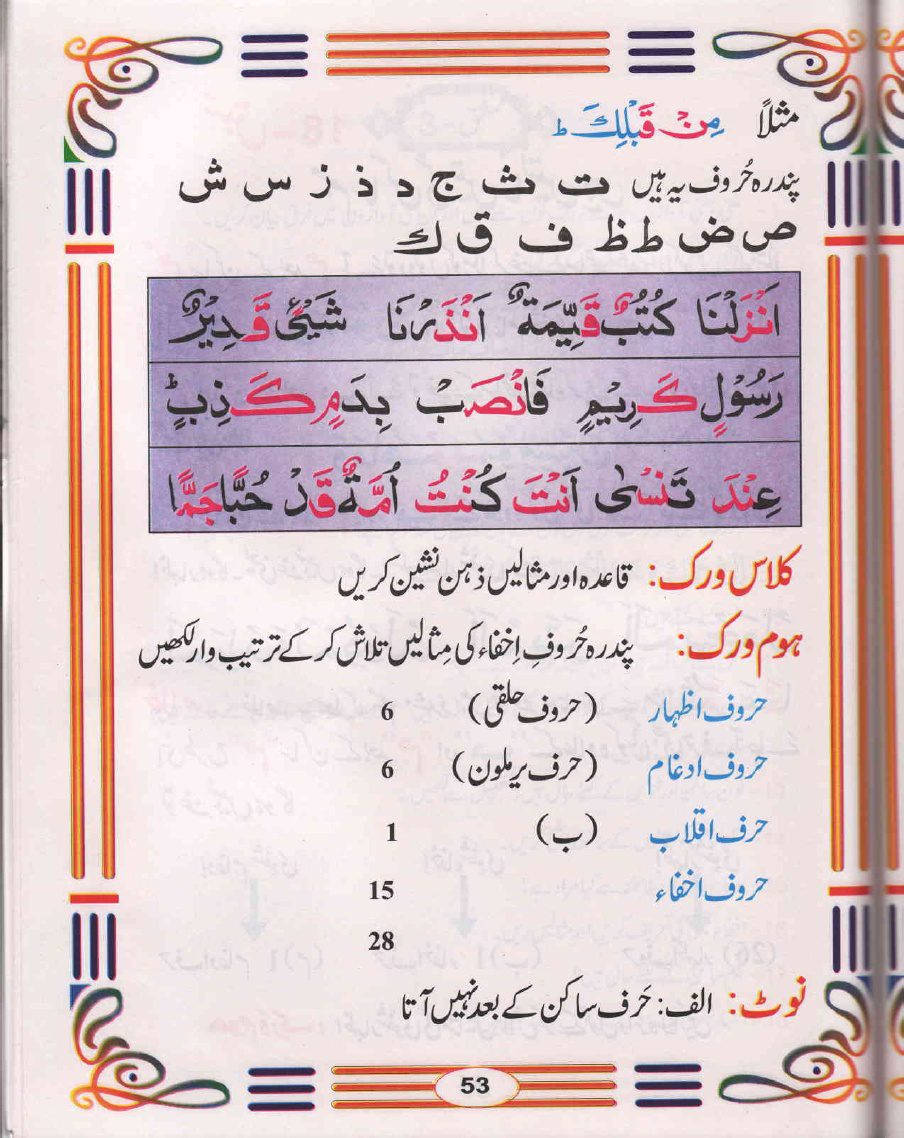 مثلاً مِنْ قَبْلِكَ ط
پندرہ حُروف یہ ہیں ت ث ج د ذ ز س ش
ص ض ط ظ ف ق ك
اَنْزَلْنَا كُتُبٌ قَيِّمَةٌ اَنْذَرْنَا شَيْئٍ قَدِيْرٌ
رَسُوْلٍ كَرِيْمٍ فَانْصَبْ بِدَمٍ كَذِبٍ ط
عِنْدَ تَنْسٰى اَنْتَ كُنْتُ اُمَّةٌ قَدْ حُبًّا جَمًّا
کلاس ورک: قاعدہ اور مثالیں ذہن نشین کریں
ہوم ورک: پندرہ حُروفِ اِخفاء کی مِثالیں تلاش کر کے ترتیب وار لکھیں
حروف اظہار (حروف حلقی) 6
حروف ادغام (حرف یرملون) 6
حرف اقلاب (ب) 1
حروف اخفاء 15
28
نوٹ: الف: حَرف ساکن کے بعد نہیں آتا
53